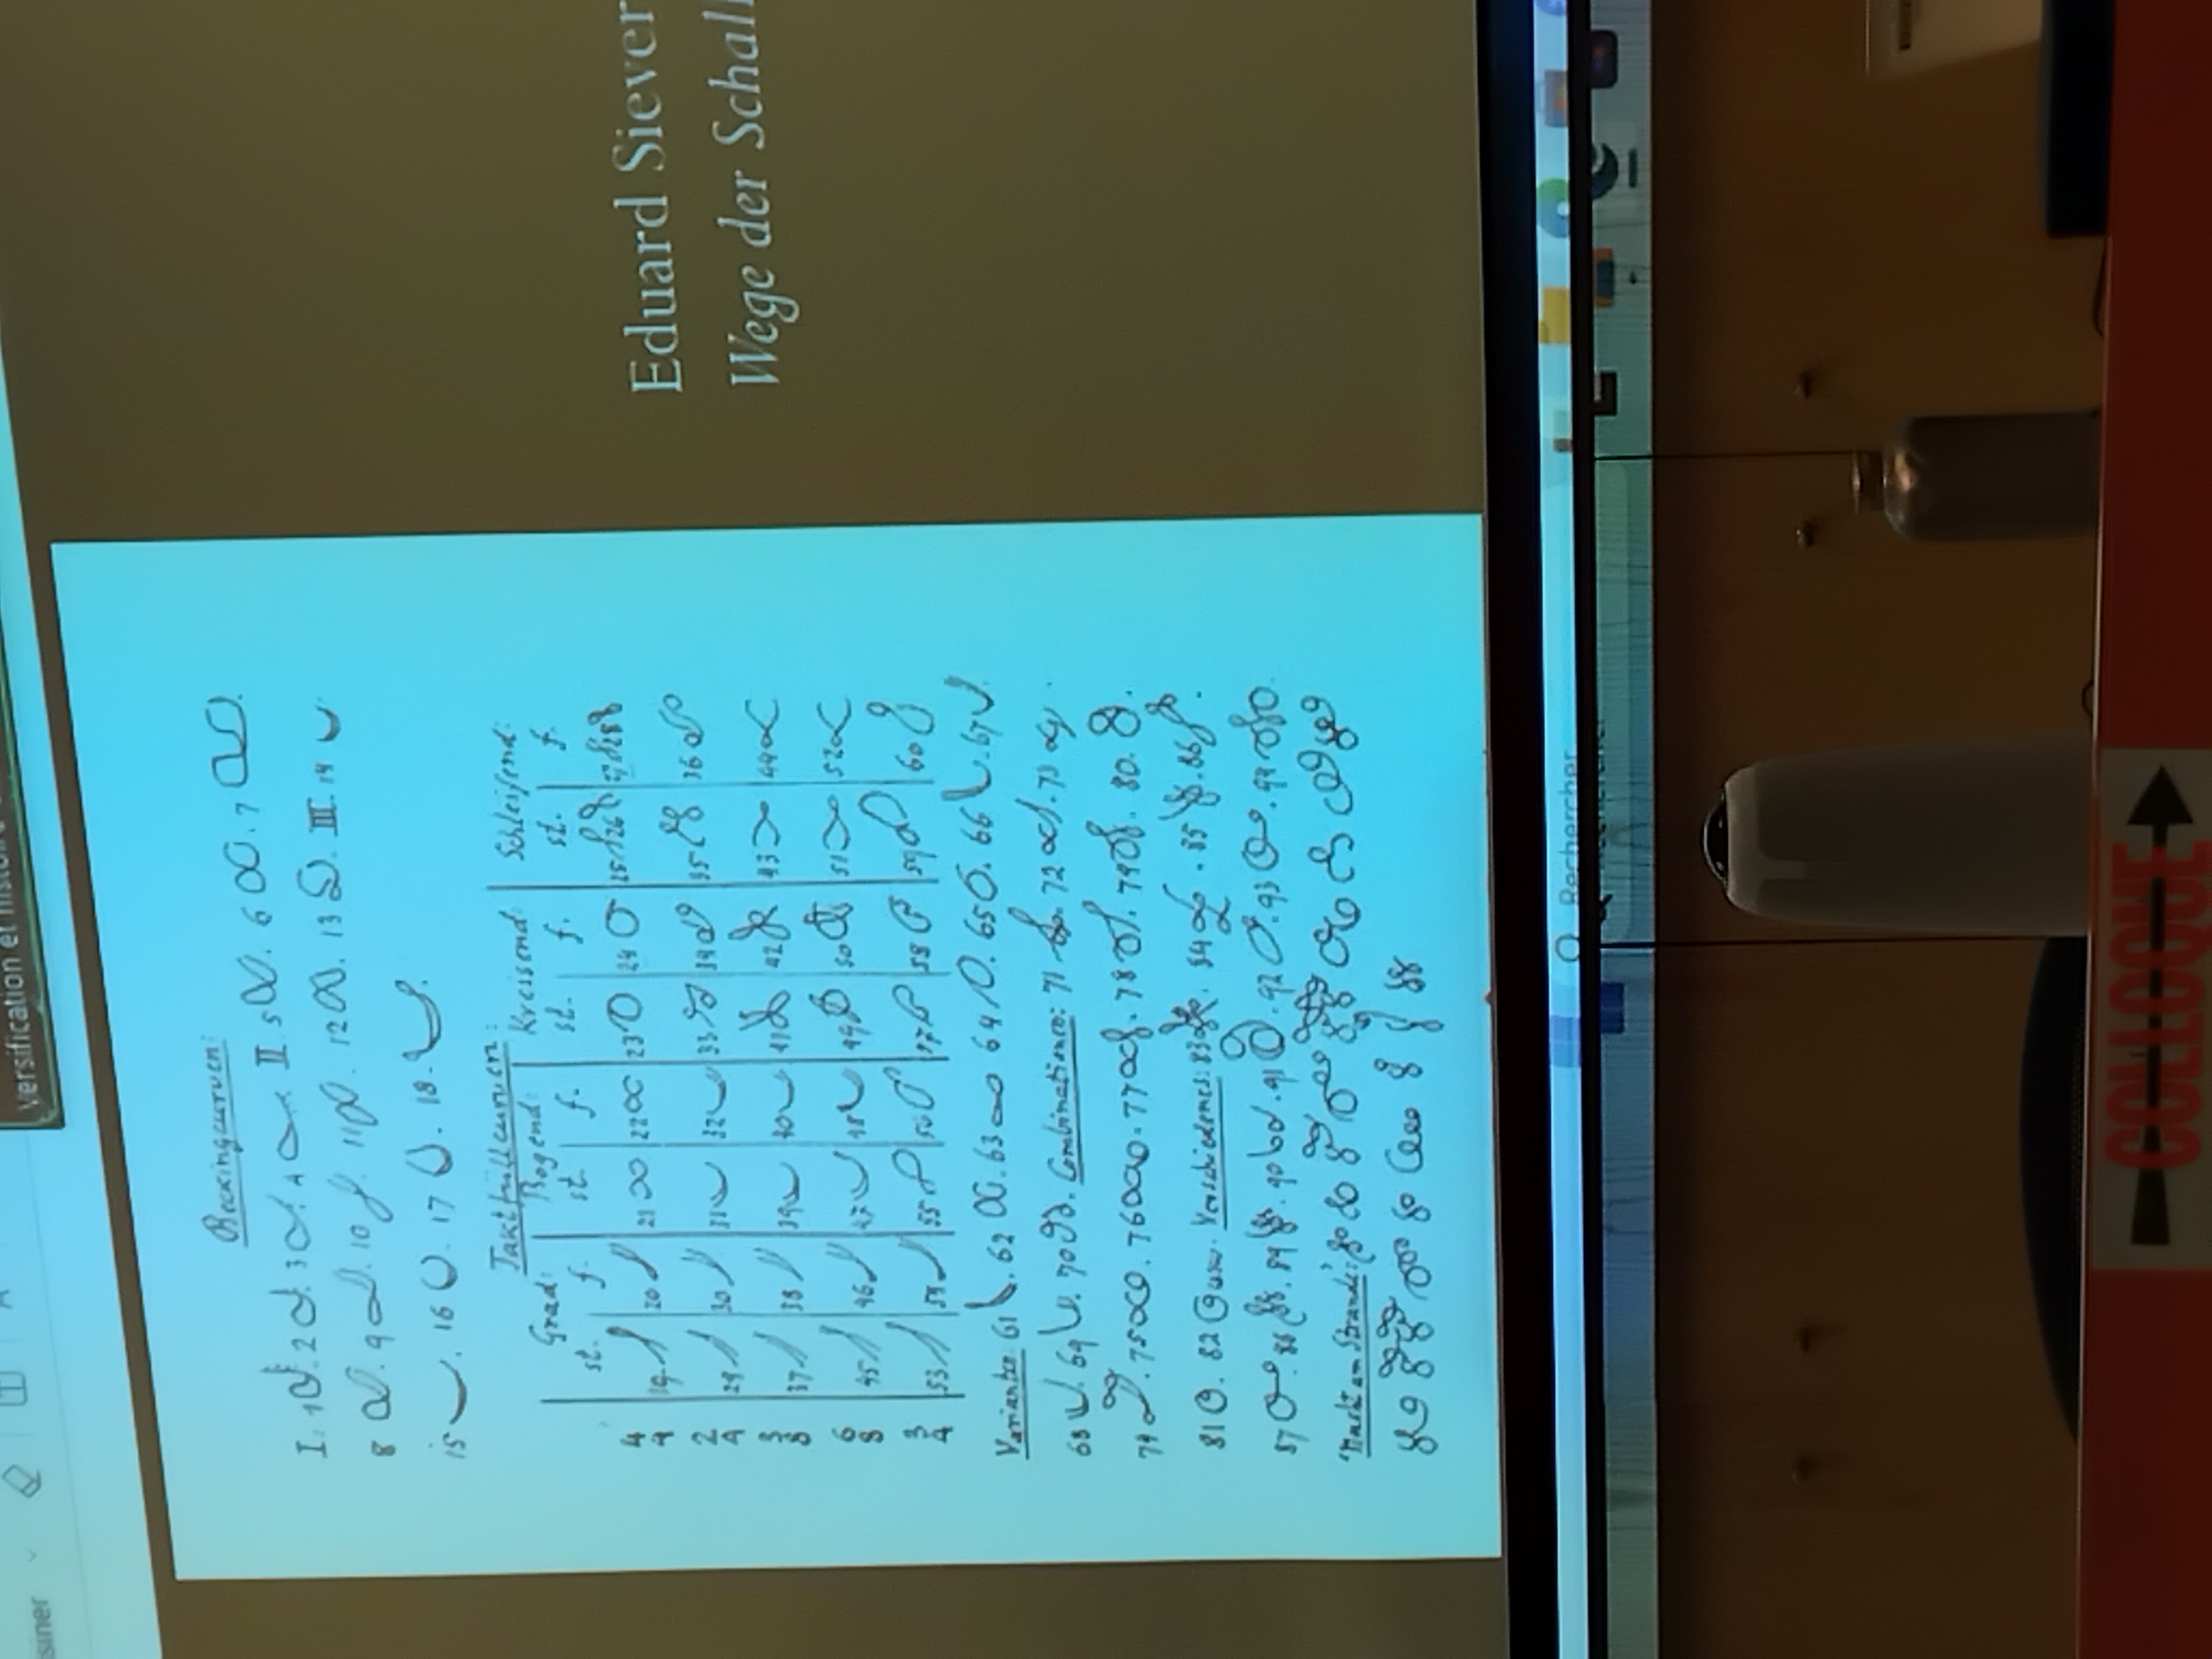 versification et histoire
siner
Eduard Siever
Wege der Schall
Beckingcurven:
I. 1 2 3 4 II. 5 6 7
8 9 10 11 12 13 III. 14
15 16 17 18
Taktfüllcurven:
Grad: Bogend: Kreisend: Schleifend:
st. f. st. f. st. f. st. f.
4 4 19 20 21 22 23 24 25 26 27 28
2 4 29 30 31 32 33 34 35 36
3 8 37 38 39 40 41 42 43 44
6 8 45 46 47 48 49 50 51 52
3 4 53 54 55 56 57 58 59 60
Variante: 61 62 63 64 65 66 67
68 69 70 Combinationen: 71 72 73
74 75 76 77 78 79 80
81 82 usw. Verschiedenes: 83 84 85 86
87 88 89 90 91 92 93 94
Rechercher
COLLOQUE